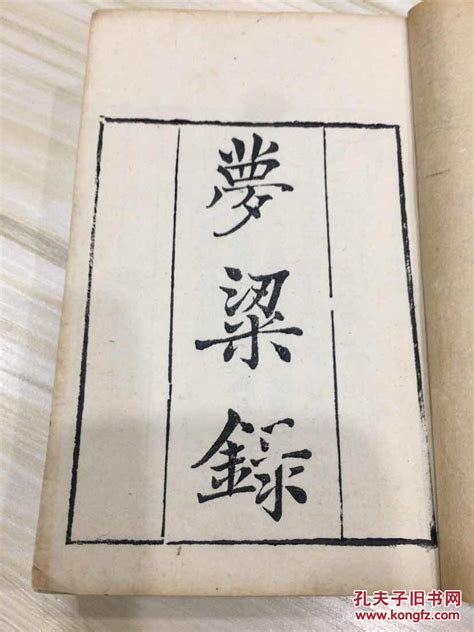 夢
粱
録
孔夫子旧书网
www.kongfz.com